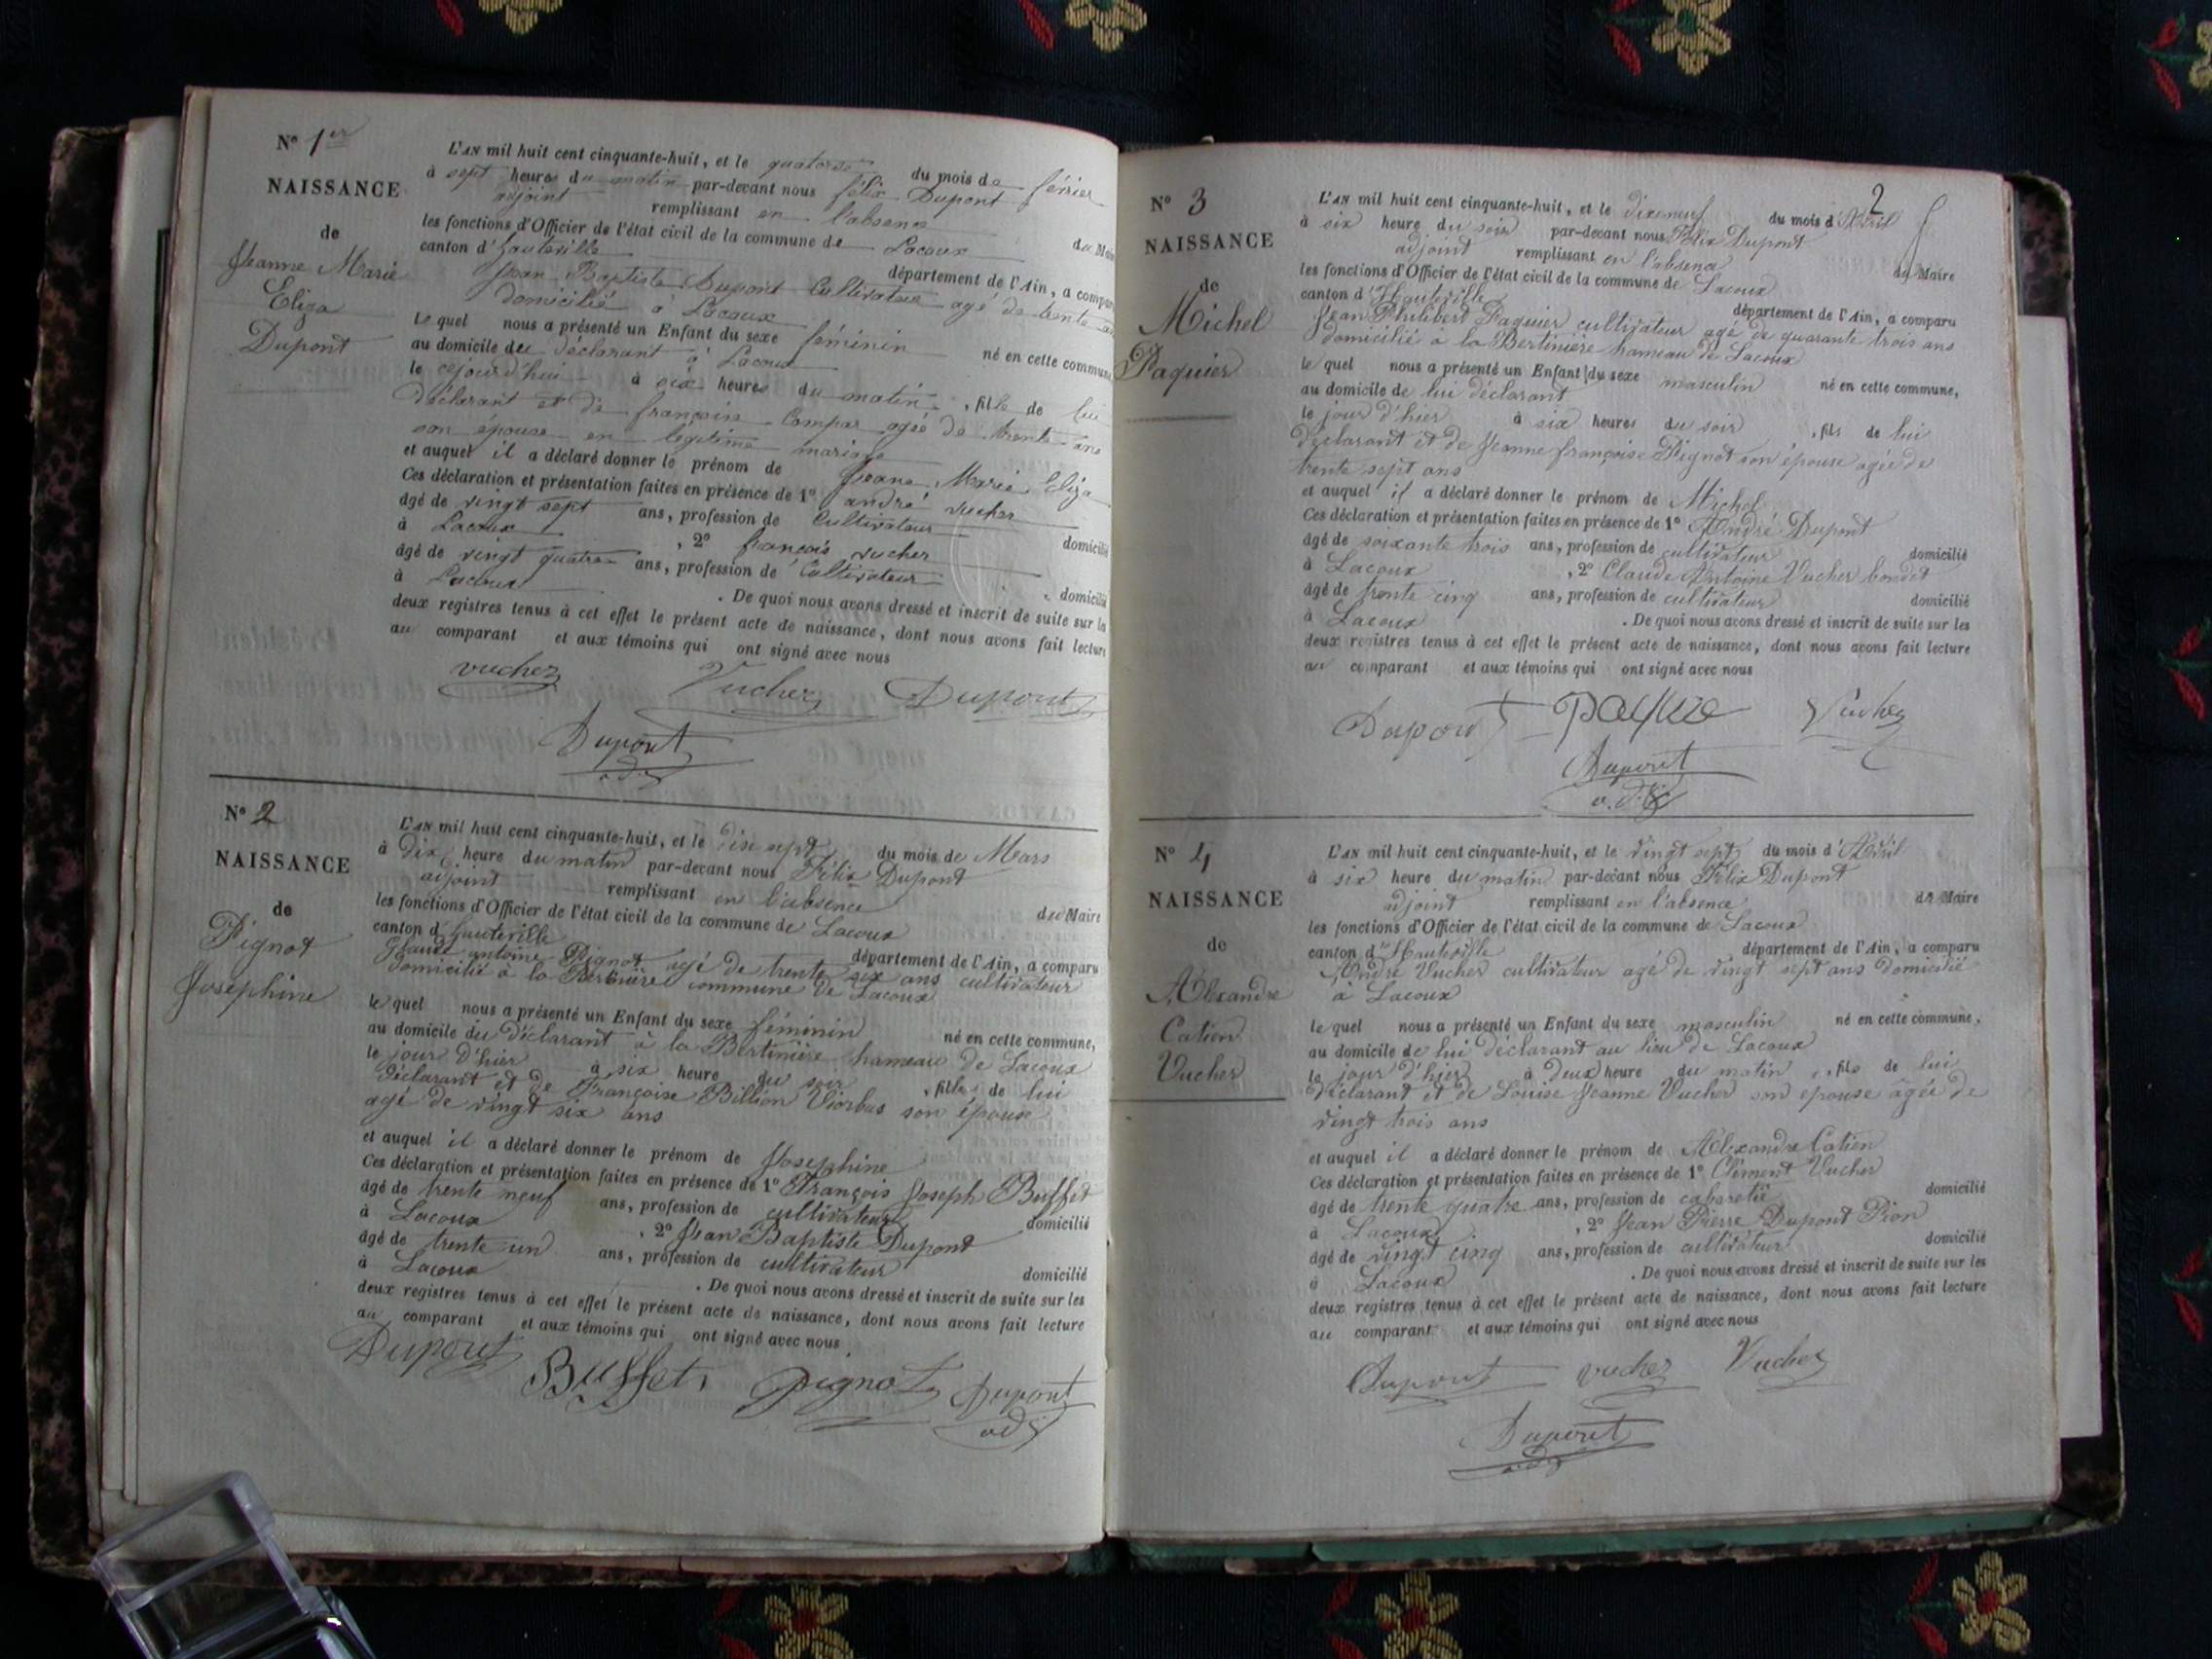 N° 1er
NAISSANCE
de
Jeanne Marie
Eliza
Dupont
L'AN mil huit cent cinquante-huit, et le quatorze du mois de février
à sept heures du matin par-devant nous félix Dupont
adjoint remplissant en l'absence du Maire
les fonctions d'Officier de l'état civil de la commune de Lacoux
canton d'hauteville département de l'Ain, a comparu
Jean Baptiste Dupont Cultivateur agé de trente
domicilié à Lacoux
le quel nous a présenté un Enfant du sexe féminin né en cette commune,
au domicile du déclarant à Lacoux
le cejourd'hui à six heures du matin, fille de lui
déclarant et de françoise Compar agée de trente ans
son épouse en légitime mariage
et auquel il a déclaré donner le prénom de Jeane Marie Eliza
Ces déclaration et présentation faites en présence de 1° andré vucher
âgé de vingt sept ans, profession de Cultivateur domicilié
à Lacoux , 2° françois vucher
âgé de vingt quatre ans, profession de Cultivateur domicilié
à Lacoux . De quoi nous avons dressé et inscrit de suite sur les
deux registres tenus à cet effet le présent acte de naissance, dont nous avons fait lecture
au comparant et aux témoins qui ont signé avec nous
vucher Vucher Dupont
Dupont
adj
N° 2
NAISSANCE
de
Pignot
Josephine
L'AN mil huit cent cinquante-huit, et le dix sept du mois de Mars
à dix heure du matin par-devant nous Félix Dupont
adjoint remplissant en l'absence du Maire
les fonctions d'Officier de l'état civil de la commune de Lacoux
canton d'hauteville département de l'Ain, a comparu
Claude antoine Pignot agé de trente six ans cultivateur
domicilié à la Bertinière commune de Lacoux
le quel nous a présenté un Enfant du sexe féminin né en cette commune,
au domicile du déclarant à la Bertinière hameau de Lacoux
le jour d'hier à six heure du soir, fille de lui
déclarant et de Françoise Billion Viorbas son épouse
agé de vingt six ans
et auquel il a déclaré donner le prénom de Josephine
Ces déclaration et présentation faites en présence de 1° François Joseph Buffet
âgé de trente neuf ans, profession de cultivateur domicilié
à Lacoux , 2° Jean Baptiste Dupont
âgé de trente un ans, profession de cultivateur domicilié
à Lacoux . De quoi nous avons dressé et inscrit de suite sur les
deux registres tenus à cet effet le présent acte de naissance, dont nous avons fait lecture
au comparant et aux témoins qui ont signé avec nous.
Dupont Buffet pignot Dupont
adj
2
N° 3
NAISSANCE
de
Michel
Paquier
L'AN mil huit cent cinquante-huit, et le dixeneuf du mois d'Abril
à six heure du soir par-devant nous Félix Dupont
adjoint remplissant en l'absence du Maire
les fonctions d'Officier de l'état civil de la commune de Lacoux
canton d'Hauteville département de l'Ain, a comparu
Jean Philibert Paquier cultivateur agé de quarante trois ans
domicilié à la Bertiniere hameau de Lacoux
le quel nous a présenté un Enfant du sexe masculin né en cette commune,
au domicile de lui déclarant
le jour d'hier à six heures du soir, fils de lui
déclarant et de Jeanne françoise Pignot son épouse agée de
trente sept ans
et auquel il a déclaré donner le prénom de Michel
Ces déclaration et présentation faites en présence de 1° André Dupont
âgé de soixante trois ans, profession de cultivateur domicilié
à Lacoux , 2° Claude Antoine Vucher bondet
âgé de trente cinq ans, profession de cultivateur domicilié
à Lacoux . De quoi nous avons dressé et inscrit de suite sur les
deux registres tenus à cet effet le présent acte de naissance, dont nous avons fait lecture
au comparant et aux témoins qui ont signé avec nous
Dupont Paquie Vucher
Dupont
adj
N° 4
NAISSANCE
de
Alexandre
Catien
Vucher
L'AN mil huit cent cinquante-huit, et le vingt sept du mois d'Abril
à six heure du matin par-devant nous Félix Dupont
adjoint remplissant en l'absence du Maire
les fonctions d'Officier de l'état civil de la commune de Lacoux
canton d'Hauteville département de l'Ain, a comparu
André Vucher cultivateur agé de vingt sept ans domicilié
à Lacoux
le quel nous a présenté un Enfant du sexe masculin né en cette commune,
au domicile de lui déclarant au lieu de Lacoux
le jour d'hier à deux heure du matin, fils de lui
déclarant et de Louise Jeanne Vucher son épouse agée de
vingt trois ans
et auquel il a déclaré donner le prénom de Alexandre Catien
Ces déclaration et présentation faites en présence de 1° Clément Vucher
âgé de trente quatre ans, profession de cabaretié domicilié
à Lacoux , 2° Jean Pierre Dupont Pion
âgé de vingt cinq ans, profession de cultivateur domicilié
à Lacoux . De quoi nous avons dressé et inscrit de suite sur les
deux registres tenus à cet effet le présent acte de naissance, dont nous avons fait lecture
au comparant et aux témoins qui ont signé avec nous
Dupont vucher Vucher
Dupont
adj